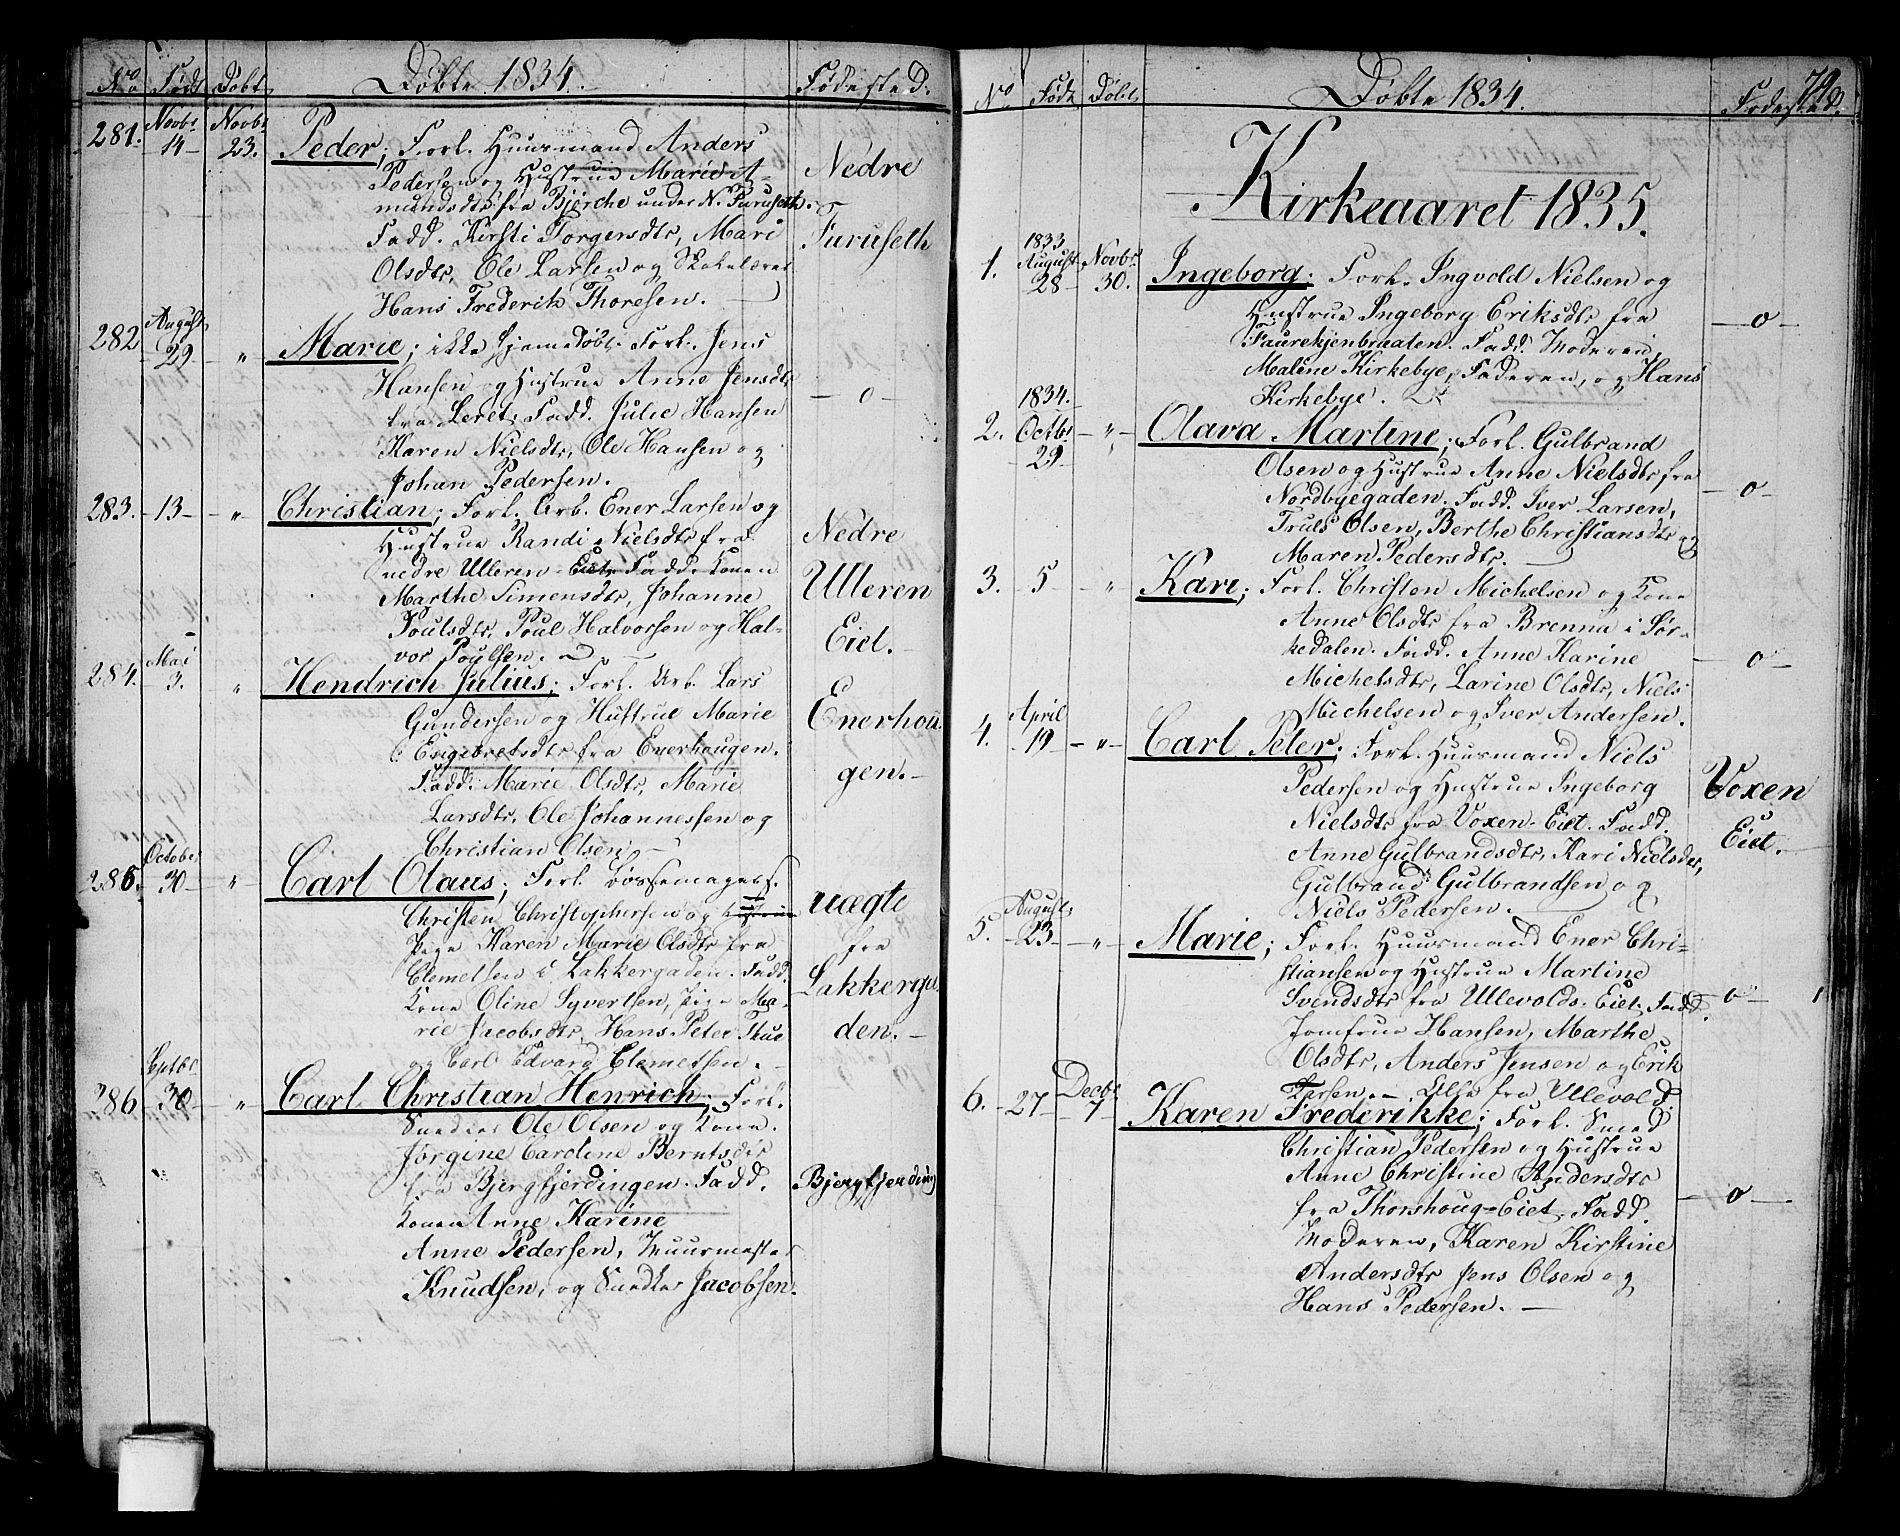 No Født Døbt Døbte 1834. Fødested.
281. Novbr 14 Novbr 23. Peder; Forl. Huusmand Anders
Pedersen og Hustrue Marie A-
mundsdtr fra Bjerche under N. Furuseth.
Fadd. Kirsti Torgersdtr, Mari
Olsdtr, Ole Larsen og Skolelærer
Hans Frederik Thoresen.
Nedre
Furuseth
282 August 29 " Marie; ikke hjemdøbt. Forl. Jens
Hansen og Hustrue Anne Jensdtr
fra Leret. Fadd. Julie Hansen
Karen Nielsdtr, Ole Hansen og
Johan Pedersen.
- o -
283. -13- " Christian; Forl. Arb. Ener Larsen og
Hustrue Randi Nielsdtr fra
nedre Ulleren Eiet. Fadd. Konen
Marthe Simensdtr, Johanne
Poulsdtr, Poul Halvorsen og Hal-
vor Poulsen.
Nedre
Ulleren
Eiet.
284. Mai 3. " Hendrich Julius; Forl. Arb. Lars
Gundersen og Hustrue Marie
Engebretsdtr fra Enerhougen.
Fadd. Marie Olsdtr, Marie
Larsdtr, Ole Johannessen og
Christian Olsen.
Enerhou
gen.
285. October 30 " Carl Olaus; Forl. Bøssemagers.
Christen Christophersen og Hustrue
Pige Karen Marie Olsdtr fra
Clemetsen i Lakkergaden. Fadd.
Kone Oline Syvertsen, Pige Ma-
rie Jacobsdtr, Hans Peter Thue
og Carl Edvard Clemetsen.
uægte
fra
Lakkerga
den.
286 Septbr 30 " Carl Christian Henrich; Forl.
Snedker Ole Olsen og Kone
Jørgine Caroline Berntsdtr
fra Bjergfjerdingen. Fadd.
Konen Anne Karine
Anne Pedersen, Muurmester
Knudsen, og Snedker Jacobsen.
Bjergfjerding
No Født Døbt Døbte 1834. Fødested. 79
Kirkeaaret 1835.
1. 1833 August 28 Novbr 30. Ingeborg; Forl. Ingvold Nielsen og
Hustrue Ingeborg Eriksdtr fra
Faurekjenbraaten. Fadd. Moderen,
Malene Kirkebye, Faderen, og Hans
Kirkebye.
- o -
2. 1834. Octbr 29 " Olava Martine; Forl. Gulbrand
Olsen og Hustrue Anne Nielsdtr fra
Nordbyegaden. Fadd. Iver Larsen,
Truls Olsen, Berthe Christiansdtr og
Maren Pedersdtr.
- o -
3. 5 " Kari; Forl. Christen Michelsen og Kone
Anne Olsdtr fra Brenna i Sør-
kedalen. Fadd. Anne Karine
Michelsdtr, Larine Olsdtr, Niels
Michelsen og Iver Andersen.
- o -
4. April 19 " Carl Peter; Forl. Huusmand Niels
Pedersen og Hustrue Ingeborg
Nielsdtr fra Voxen-Eiet. Fadd.
Anne Gulbrandsdtr, Kari Nielsdtr,
Gulbrand Gulbrandsen og
Niels Pedersen.
Voxen
Eiet.
5. August 23 " Marie; Forl. Huusmand Ener Chri-
stiansen og Hustrue Martine
Svendsdtr fra Ullevolds-Eiet. Fadd.
Jomfrue Hansen, Marthe
Olsdtr, Anders Jensen og Erik
Larsen. - Alle fra Ullevold.
- o -
6. 27 Decbr 7 Karen Frederikke; Forl. Smed
Christian Pedersen og Hustrue
Anne Christine Andersdtr
fra Thorshoug-Eiet. Fadd.
Moderen, Karen Kirstine
Andersdtr Jens Olsen og
Hans Pedersen.
- o -